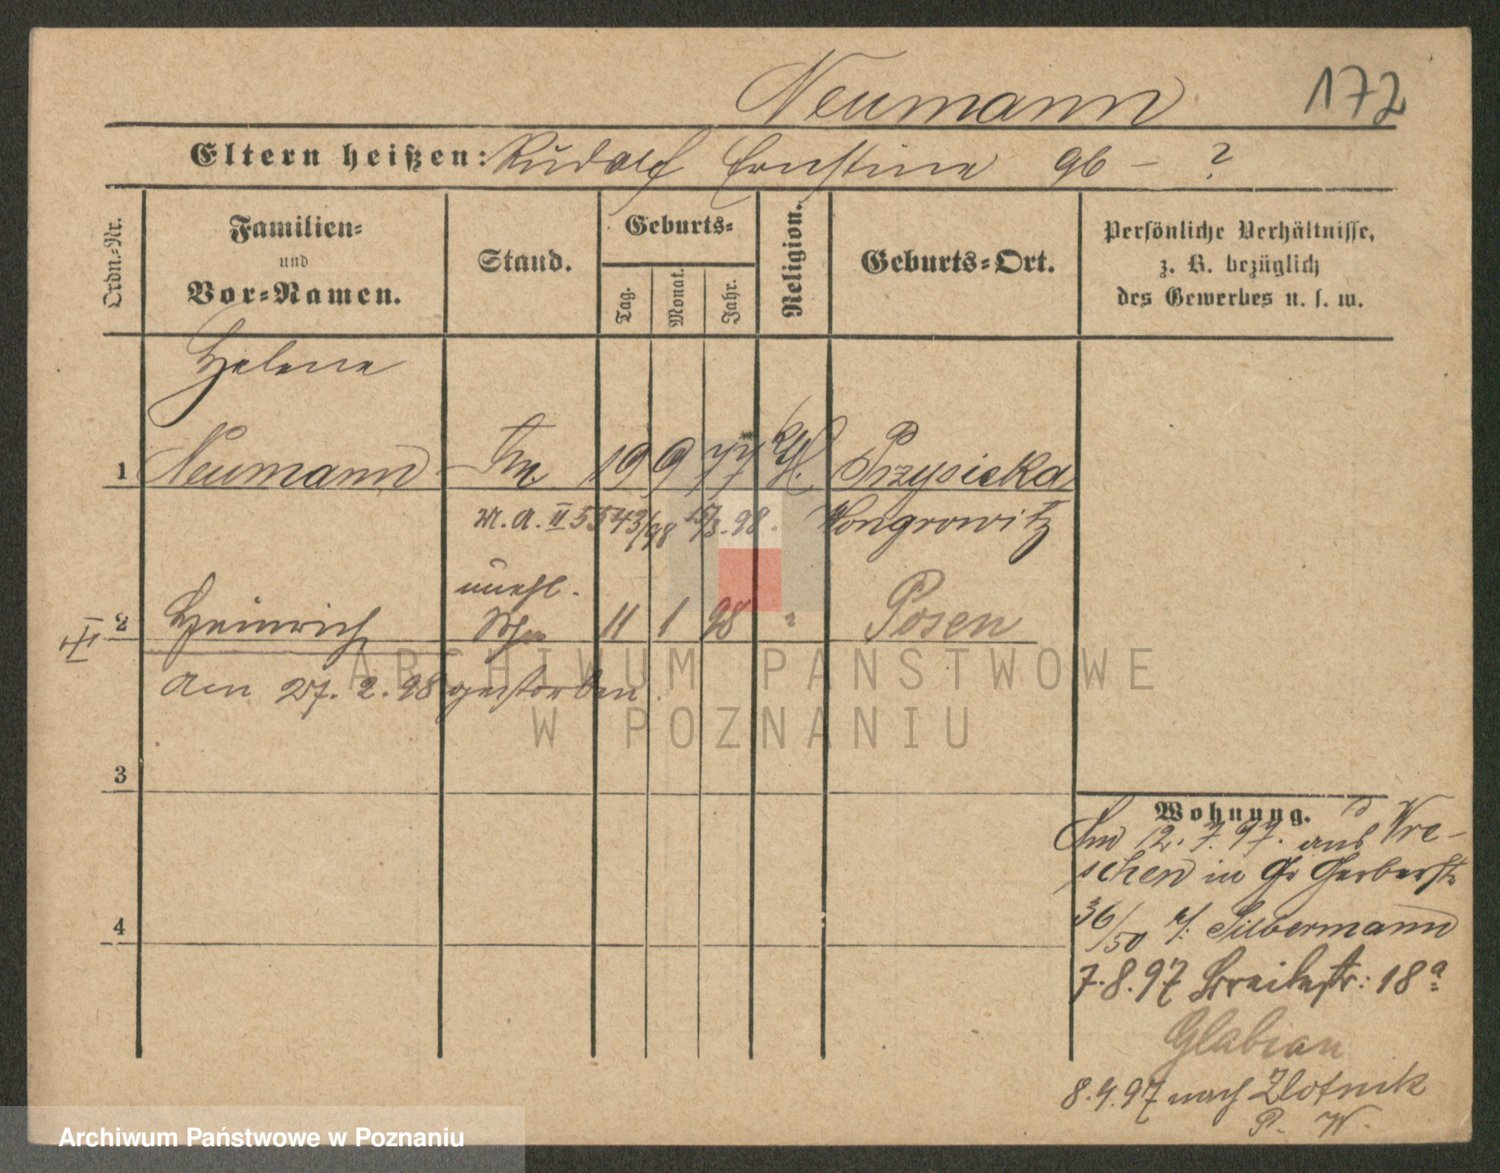 Neumann 172
Eltern heißen: Rudolf Ernstine gb - ?
Ordn.-Nr.
Familien-
und
Vor-Namen.
Stand.
Geburts-
Tag.
Monat.
Jahr.
Religion.
Geburts-Ort.
Persönliche Verhältnisse,
z. B. bezüglich
des Gewerbes u. s. w.
Helene
1 Neumann 19 9 77 Przysieka
M. A. II 5543/98 15/3. 98. Wongrowitz
unehl.
2 Heinrich Sohn 11 1 98 " Posen
am 27. 2. 98 gestorben.
3
4
Wohnung.
Am 12. 7. 97. aus Wre-
schen in Gr Gerberstr
36/50 b/: Silbermann
7.8.97 Breitestr: 18a
Glabian
8.9.97 nach Zlotnik
P. W.
ARCHIWUM PAŃSTWOWE
W POZNANIU
Archiwum Państwowe w Poznaniu